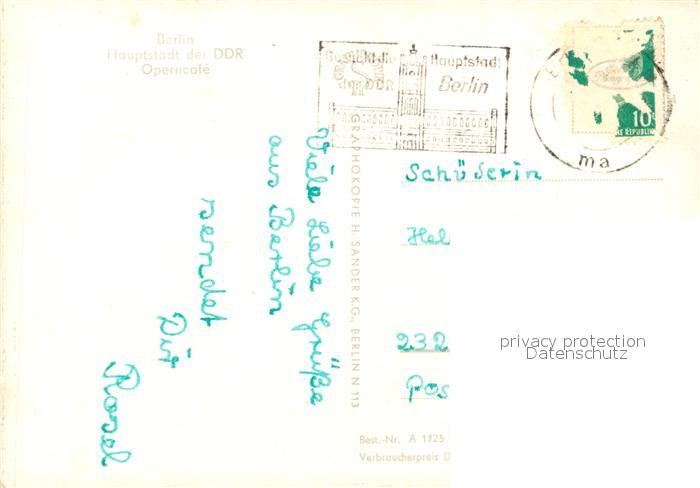 Berlin
Hauptstadt der DDR
Operncafé
Besucht die Hauptstadt
der DDR Berlin
10
ma
Schülerin
Hel
232
Pos
privacy protection
Datenschutz
Viele liebe Grüße
aus Berlin
sendet
Dir
Rosel
GRAPHOKOPIE H. SANDER K.G., BERLIN N 113
Best.-Nr. A 1725
Verbraucherpreis D